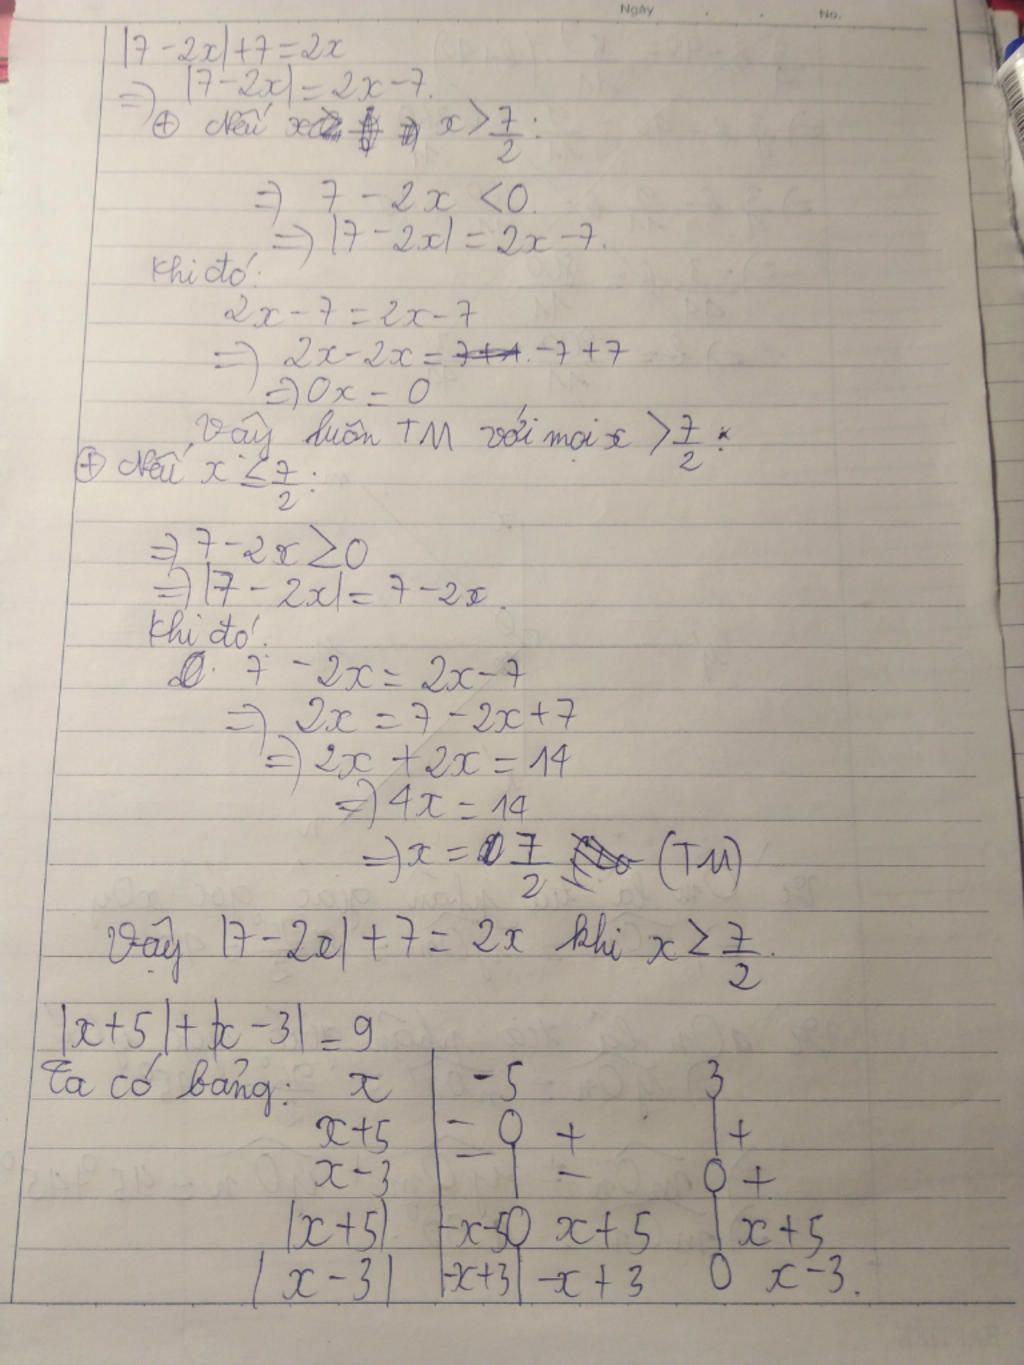 Ngày . . No.
|7-2x|+7=2x
=> |7-2x|=2x-7.
⊕ Nếu x x>7/2:
=> 7-2x<0.
=> |7-2x|=2x-7.
Khi đó:
2x-7=2x-7
=> 2x-2x=-7+7
=> 0x=0
Vậy luôn TM với mọi x>7/2.
⊕ Nếu x≤7/2:
=> 7-2x≥0
=> |7-2x|=7-2x.
Khi đó:
7-2x=2x-7
=> 2x=7-2x+7
=> 2x+2x=14
=> 4x=14
=> x=7/2 (TM)
Vậy |7-2x|+7=2x khi x≥7/2.
|x+5|+|x-3|=9
Ta có bảng: x | -5 3
x+5 | - 0 + | +
x-3 | - | - 0 +
|x+5| | -x-5 0 x+5 | x+5
|x-3| | -x+3 | -x+3 0 x-3.